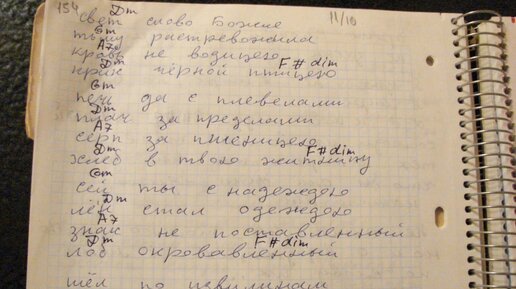 154 Dm 11/10
свет слово Божие
Gm
тьму растревожила
A7
кровь не водицею
Dm F#dim
крик чёрной птицею
Gm
печь да с плевелами
Dm
плач за пределами
A7
серп за пшеницею
Dm F#dim
хлеб в твою житницу
Gm
сей ты с надеждою
Dm
лён стал одеждою
A7
знак не поставленный
Dm F#dim
лоб окровавленный
шёл по